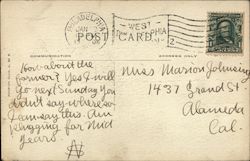 PHILADELPHIA
JAN
WEST
PHILADELPHIA
POST CARD
2
COMMUNICATION
ADDRESS ONLY
How about the
farmer? Yes I will
go next Sunday you
didn't say where, so
I am say this. Am
plugging for Mid
Years.
N
Miss Marion Johnson
1437 Grand St
Alameda
Cal.